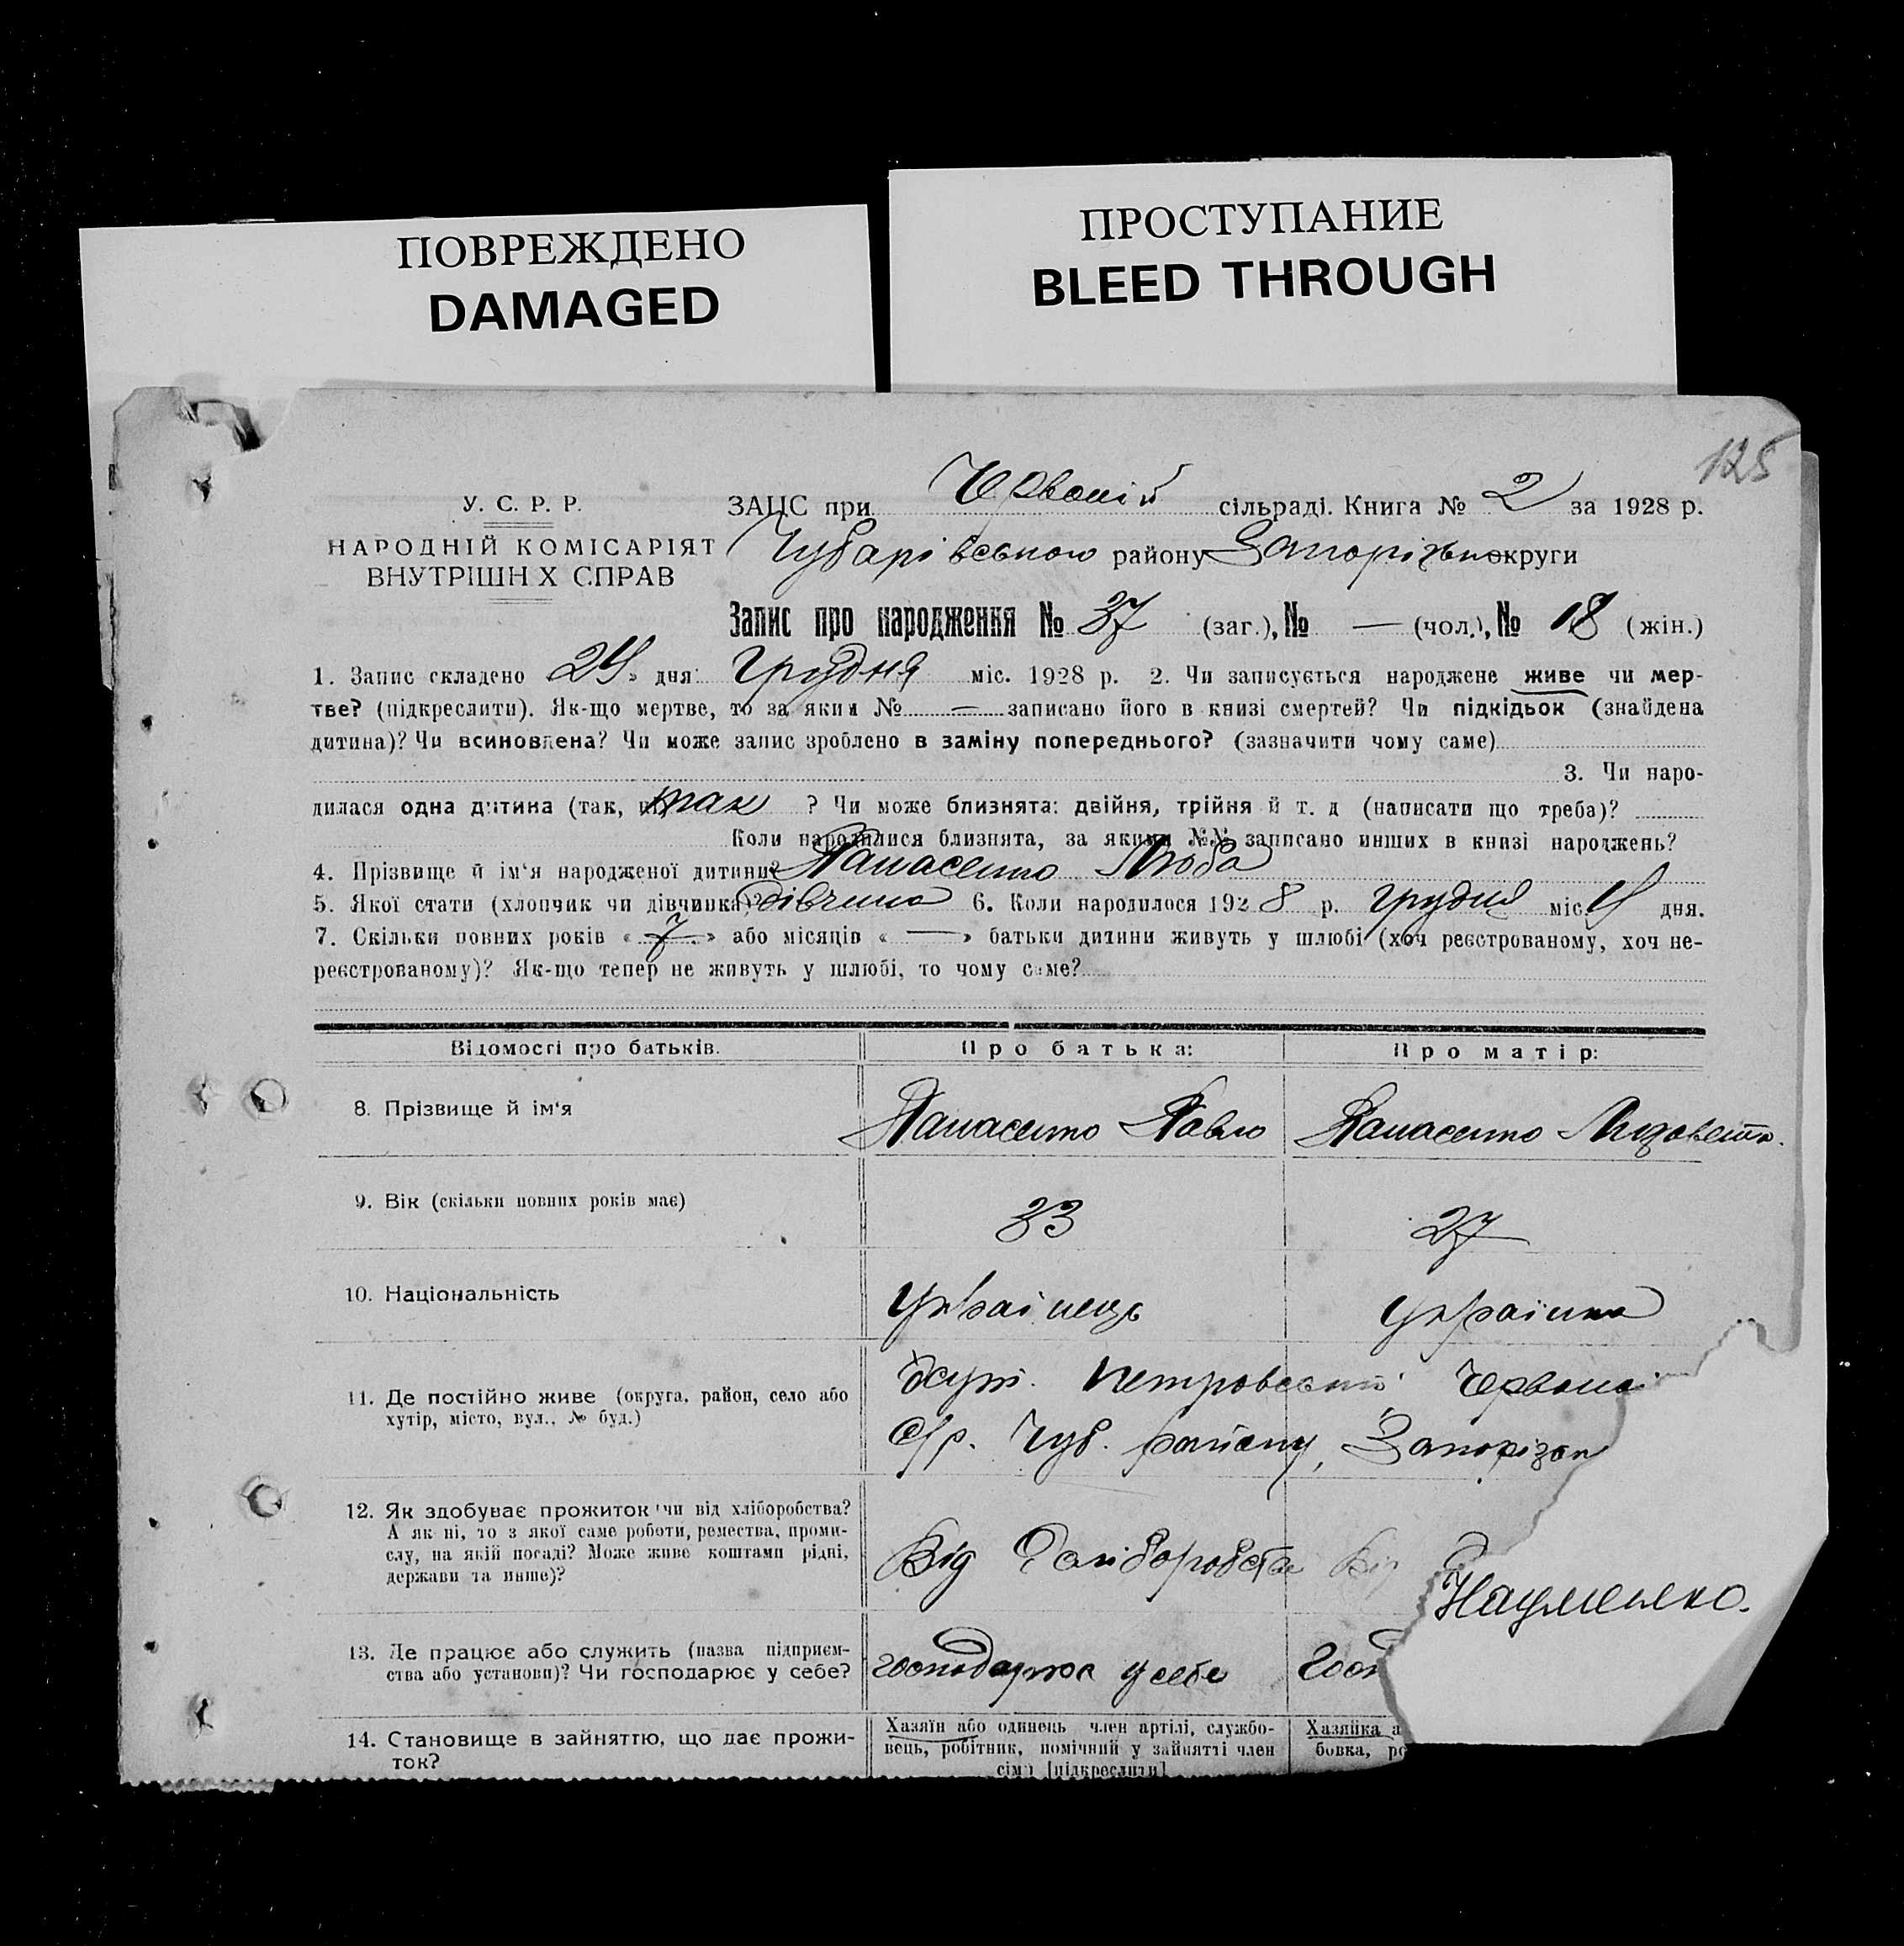 ПОВРЕЖДЕНО
DAMAGED
ПРОСТУПАНИЕ
BLEED THROUGH
125
У. С. Р. Р.
НАРОДНІЙ КОМІСАРІЯТ
ВНУТРІШН Х СПРАВ
ЗАЦС при Червоній сільраді. Книга № 2 за 1928 р.
Чубарівського району Запорізько округи
Запис про народження № 37 (заг.), № — (чол.), № 18 (жін.)
1. Запис складено 24 дня грудня міс. 1928 р. 2. Чи записується народжене живе чи мер-
тве? (підкреслити). Як-що мертве, то за яким № — записано його в книзі смертей? Чи підкідьок (знайдена
дитина)? Чи всиновлена? Чи може запис зроблено в заміну попереднього? (зазначити чому саме)
3. Чи наро-
дилася одна дитина (так, ні) так ? Чи може близнята: двійня, трійня й т. д (написати що треба)?
Коли народилися близнята, за якими №№ записано инших в книзі народжень?
4. Прізвище й ім'я народженої дитини? Панасенко Люба
5. Якої стати (хлопчик чи дівчинка)? дівчина 6. Коли народилося 1928 р. грудня міс. дня.
7. Скільки повних років « 7 » або місяців « — » батьки дитини живуть у шлюбі (хоч реєстрованому, хоч не-
реєстрованому)? Як-що тепер не живуть у шлюбі, то чому саме?
Відомості про батьків.
Про батька:
Про матір:
8. Прізвище й ім'я
Панасенко Павло
Панасенко Лизовета.
9. Вік (скільки повних років має)
33
27
10. Національність
Українець
Українка
11. Де постійно живе (округа, район, село або
хутір, місто, вул., № буд.)
Хут. Петровський Червоної
С/р. Чуб. району, Запорізьк
12. Як здобуває прожиток (чи від хліборобства?
А як ні, то з якої саме роботи, ремества, проми-
слу, на якій посаді? Може живе коштами рідні,
держави та инше)?
Від
Від
Науменко.
13. Де працює або служить (назва підприєм-
ства або установи)? Чи господарює у себе?
господарює у себе
Госп
14. Становище в зайняттю, що дає прожи-
ток?
Хазяїн або одинець член артілі, службо-
вець, робітник, помічний у зайнятті член
сім'ї [підкреслити]
Хазяйка а
бовка, ро